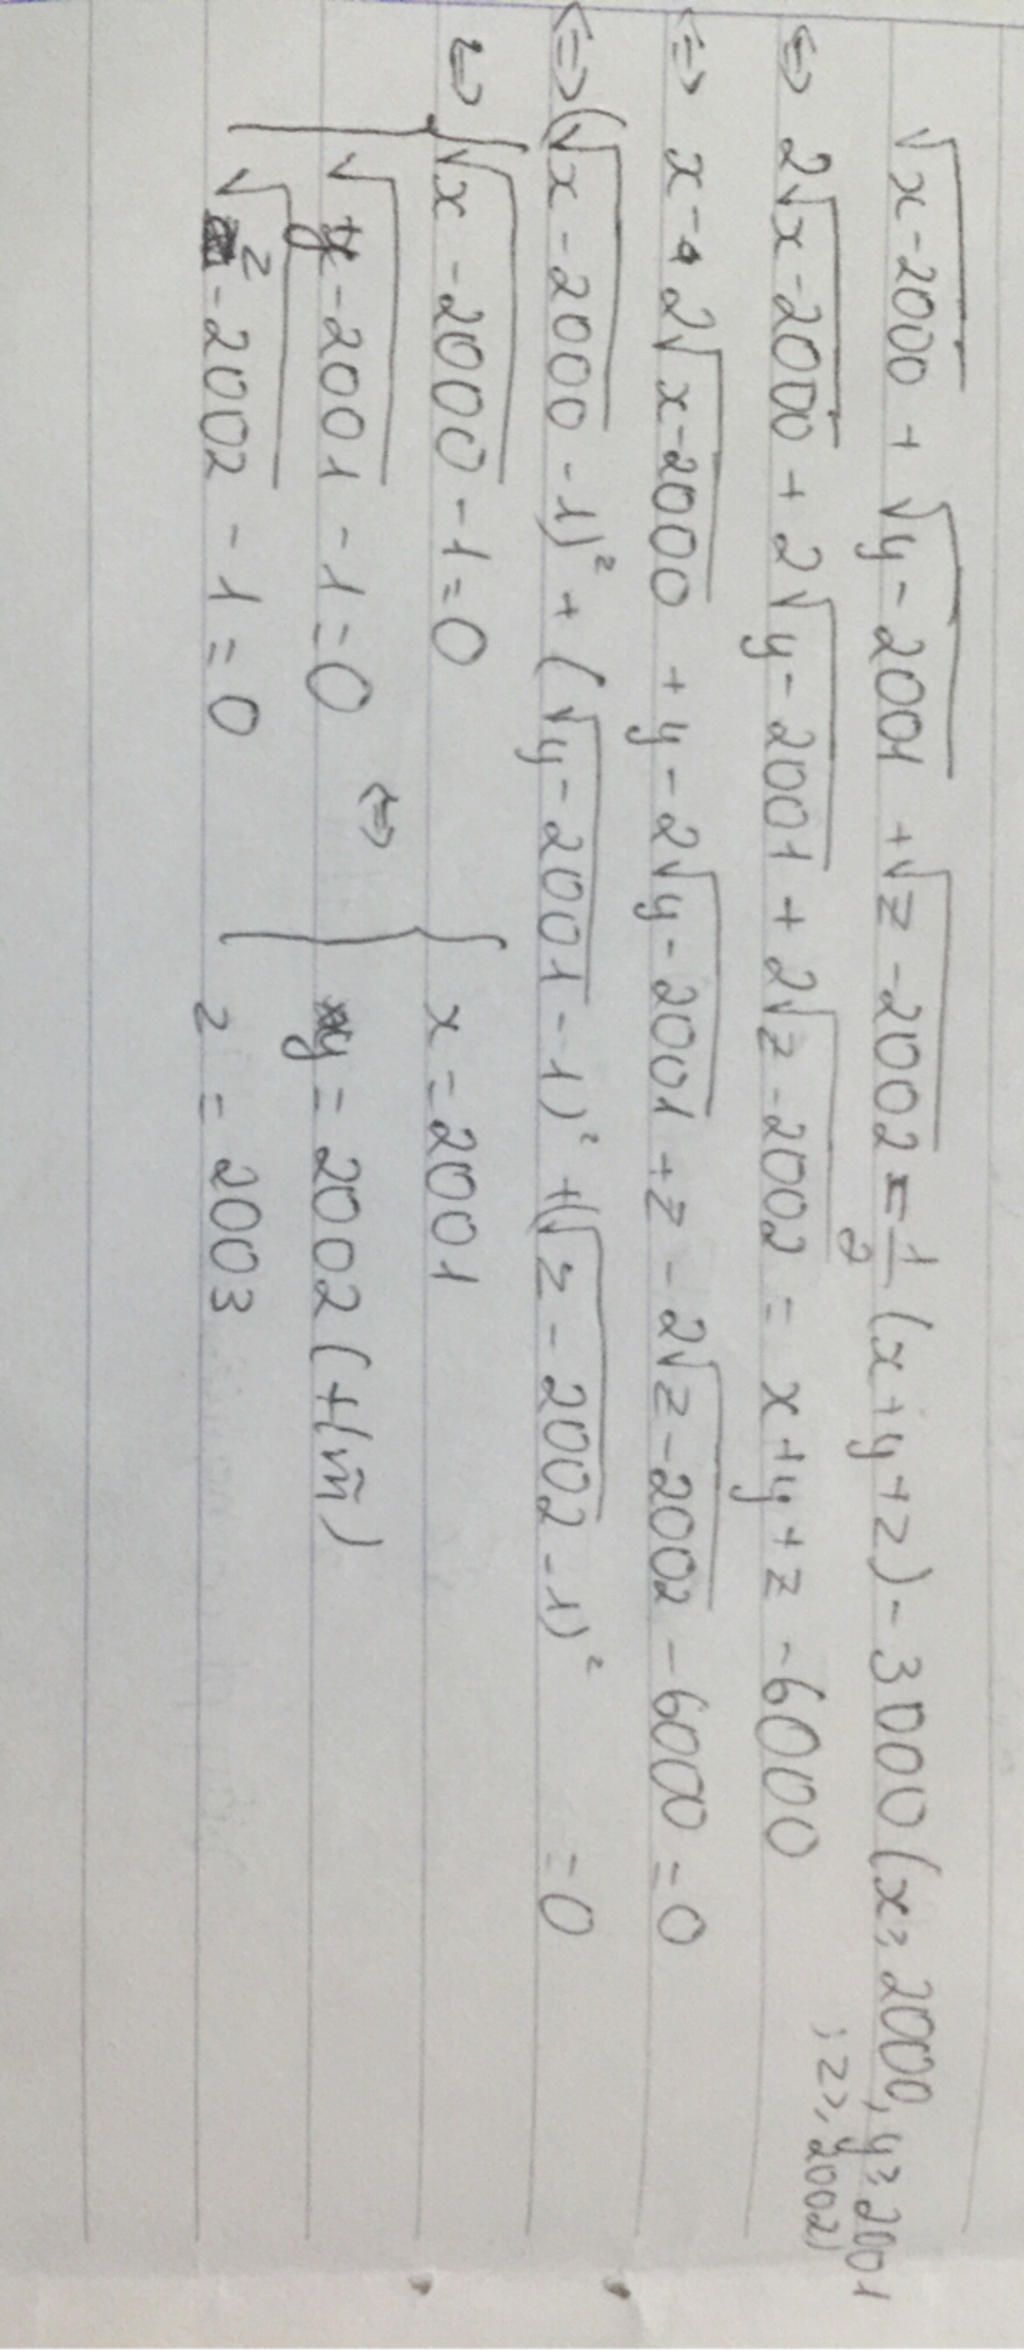 √x-2000 + √y-2001 + √z-2002 = 1/2 (x+y+z) - 3000 (x ≥ 2000, y ≥ 2001
; z ≥ 2002)
⇔ 2√x-2000 + 2√y-2001 + 2√z-2002 = x+y+z - 6000
⇔ x - 2√x-2000 + y - 2√y-2001 + z - 2√z-2002 - 6000 = 0
⇔ (√x-2000 - 1)² + (√y-2001 - 1)² + (√z-2002 - 1)² = 0
⇔ { √x-2000 - 1 = 0
√y-2001 - 1 = 0
√z-2002 - 1 = 0
⇔ { x = 2001
y = 2002 (t/m)
z = 2003